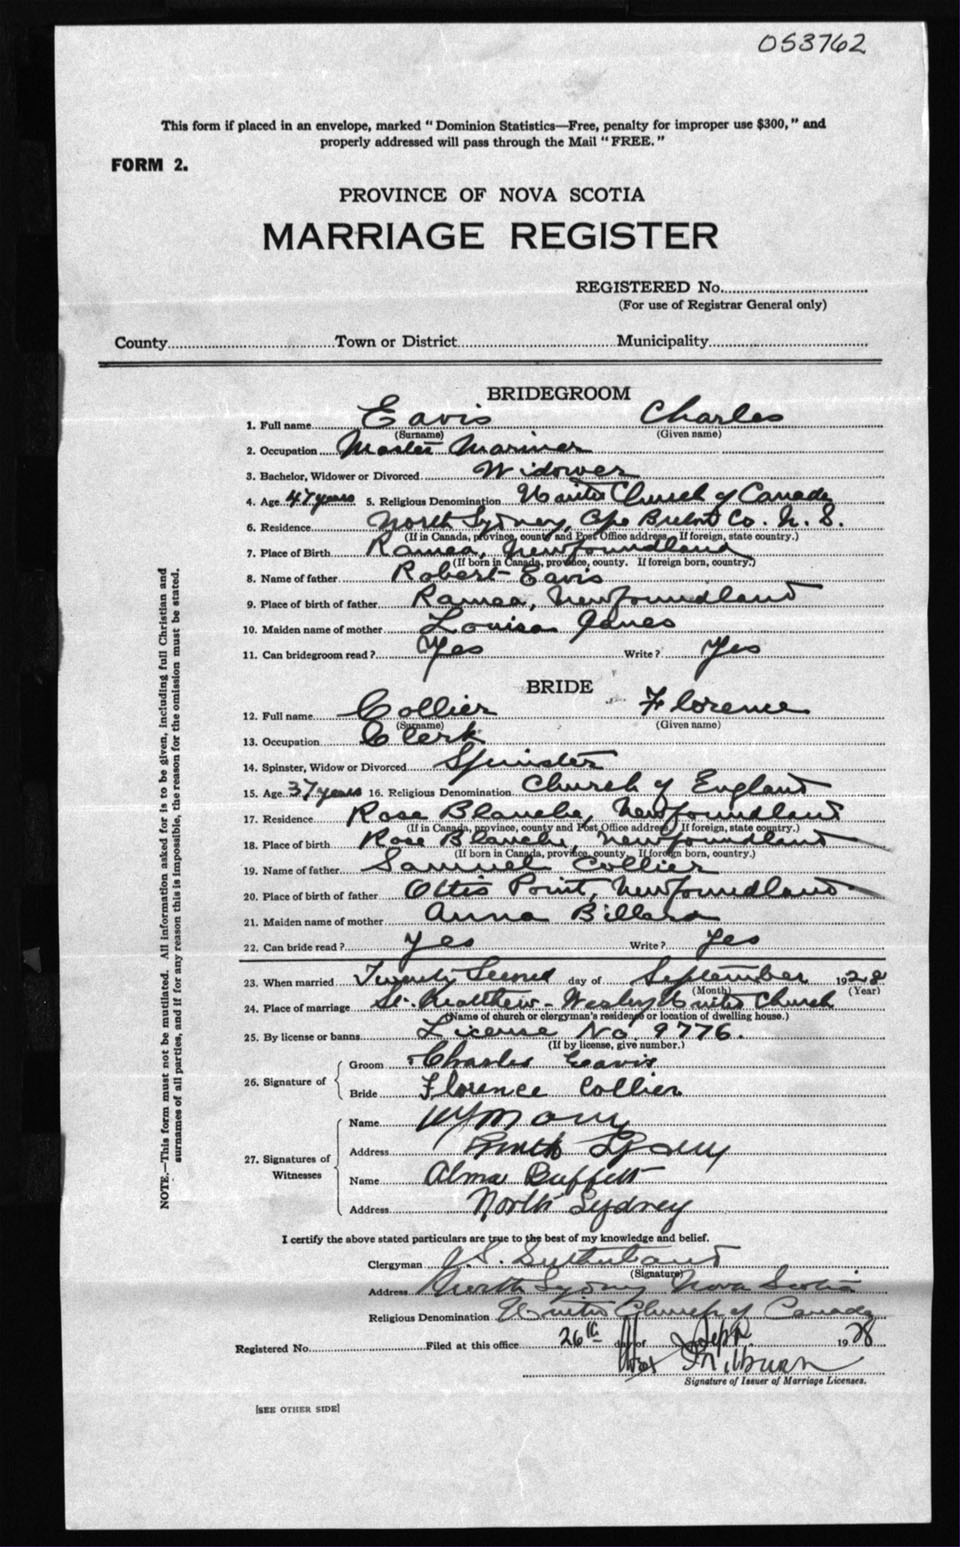 053762
This form if placed in an envelope, marked "Dominion Statistics—Free, penalty for improper use $300," and
properly addressed will pass through the Mail "FREE."
FORM 2.
PROVINCE OF NOVA SCOTIA
MARRIAGE REGISTER
REGISTERED No.
(For use of Registrar General only)
County Town or District Municipality
BRIDEGROOM
1. Full name Eavis Charles
(Surname) (Given name)
2. Occupation Master Mariner
3. Bachelor, Widower or Divorced Widower
4. Age 47 years 5. Religious Denomination United Church of Canada
6. Residence North Sydney, Cape Breton Co. N. S.
(If in Canada, province, county and Post Office address. If foreign, state country.)
7. Place of Birth Ramea, Newfoundland
(If born in Canada, province, county. If foreign born, country.)
8. Name of father Robert Eavis
9. Place of birth of father Ramea, Newfoundland
10. Maiden name of mother Louisa Janes
11. Can bridegroom read? Yes Write? Yes
BRIDE
12. Full name Collier Florence
(Surname) (Given name)
13. Occupation Clerk
14. Spinster, Widow or Divorced Spinster
15. Age 37 years 16. Religious Denomination Church of England
17. Residence Rose Blanche, Newfoundland
(If in Canada, province, county and Post Office address. If foreign, state country.)
18. Place of birth Rose Blanche, Newfoundland
(If born in Canada, province, county. If foreign born, country.)
19. Name of father Samuel Collier
20. Place of birth of father Ottis Point, Newfoundland
21. Maiden name of mother Anna Billard
22. Can bride read? Yes Write? Yes
23. When married Twenty Second day of September 1928
(Month) (Year)
24. Place of marriage St. Matthew - Wesley United Church
(Name of church or clergyman's residence or location of dwelling house.)
25. By license or banns License No. 9776.
(If by license, give number.)
26. Signature of Groom Charles Eavis
Bride Florence Collier
27. Signatures of Witnesses
Name
Address
Name Alma Buffett
Address North Sydney
I certify the above stated particulars are true to the best of my knowledge and belief.
Clergyman J. S. Sutherland
(Signature)
Address North Sydney Nova Scotia
Religious Denomination United Church of Canada
Registered No. Filed at this office 26th day of Sept 1928
Milburn
Signature of Issuer of Marriage Licenses.
[SEE OTHER SIDE]
NOTE.—This form must not be mutilated. All information asked for is to be given, including full Christian and
surnames of all parties, and if for any reason this is impossible, the reason for the omission must be stated.